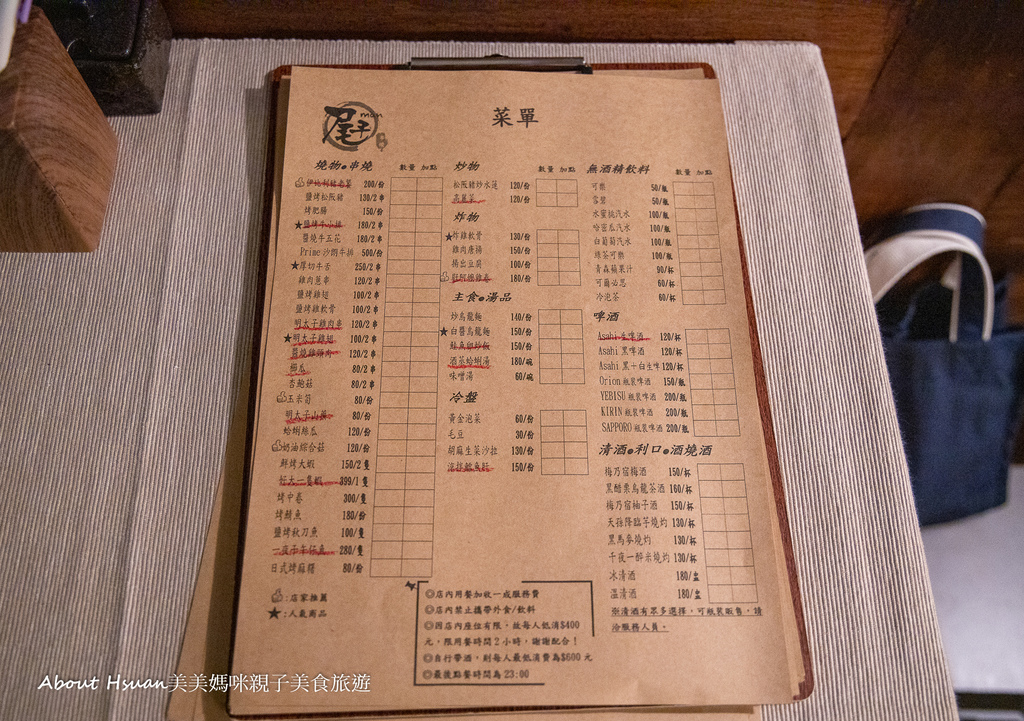 尾子
man
菜單
燒物●串燒
數量 加點
200/份
鹽烤松阪豬 130/2串
烤肥腸 150/份
★鹽烤牛小排 180/2串
醬燒牛五花 180/2串
Prime 沙朗牛排 500/份
★厚切牛舌 250/2串
雞肉蔥串 120/2串
鹽烤雞翅 100/2串
鹽烤雞軟骨 100/2串
明太子雞肉串 120/2串
★明太子雞翅 100/2串
120/2串
櫛瓜 80/2串
杏鮑菇 80/2串
玉米筍 80/份
明太子山藥 80/份
蛤蜊絲瓜 120/份
奶油綜合菇 120/份
鮮烤大蝦 150/2隻
399/1隻
烤中卷 300/隻
烤鯖魚 180/份
鹽烤秋刀魚 100/隻
280/隻
日式烤麻糬 80/份
:店家推薦
★:人氣商品
炒物
數量 加點
松阪豬炒水蓮 120/份
高麗菜 120/份
炸物
★炸雞軟骨 130/份
雞肉唐揚 150/份
揚出豆腐 100/份
180/份
主食●湯品
炒烏龍麵 140/份
★白醬烏龍麵 150/份
150/份
酒蒸蛤蜊湯 180/碗
味噌湯 60/碗
冷盤
黃金泡菜 60/份
毛豆 30/份
胡麻生菜沙拉 130/份
150/份
無酒精飲料
數量 加點
可樂 50/瓶
雪碧 50/瓶
水蜜桃汽水 100/瓶
哈密瓜汽水 100/瓶
白葡萄汽水 100/瓶
綠茶可樂 100/瓶
青森蘋果汁 90/杯
可爾必思 60/杯
冷泡茶 60/杯
啤酒
Asahi 生啤酒 120/杯
Asahi 黑啤酒 120/杯
Asahi 黑十白生啤 120/杯
Orion 瓶裝啤酒 150/瓶
YEBISU 瓶裝啤酒 200/瓶
KIRIN 瓶裝啤酒 200/瓶
SAPPORO 瓶裝啤酒 200/瓶
清酒●利口●酒燒酒
梅乃宿梅酒 150/杯
黑醋栗烏龍茶酒 160/杯
梅乃宿柚子酒 150/杯
天孫降臨芋燒灼 130/杯
黑馬麥燒灼 130/杯
千夜一醉米燒灼 130/杯
冰清酒 180/盅
溫清酒 180/盅
※清酒有眾多選擇，可瓶裝販售，請
洽服務人員。
◎店內用餐加收一成服務費
◎店內禁止攜帶外食/飲料
◎因店內座位有限，故每人低消$400
元，限用餐時間2小時，謝謝配合！
◎自行帶酒，則每人最低消費為$600元
◎最後點餐時間為 23:00
About Hsuan美美媽咪親子美食旅遊